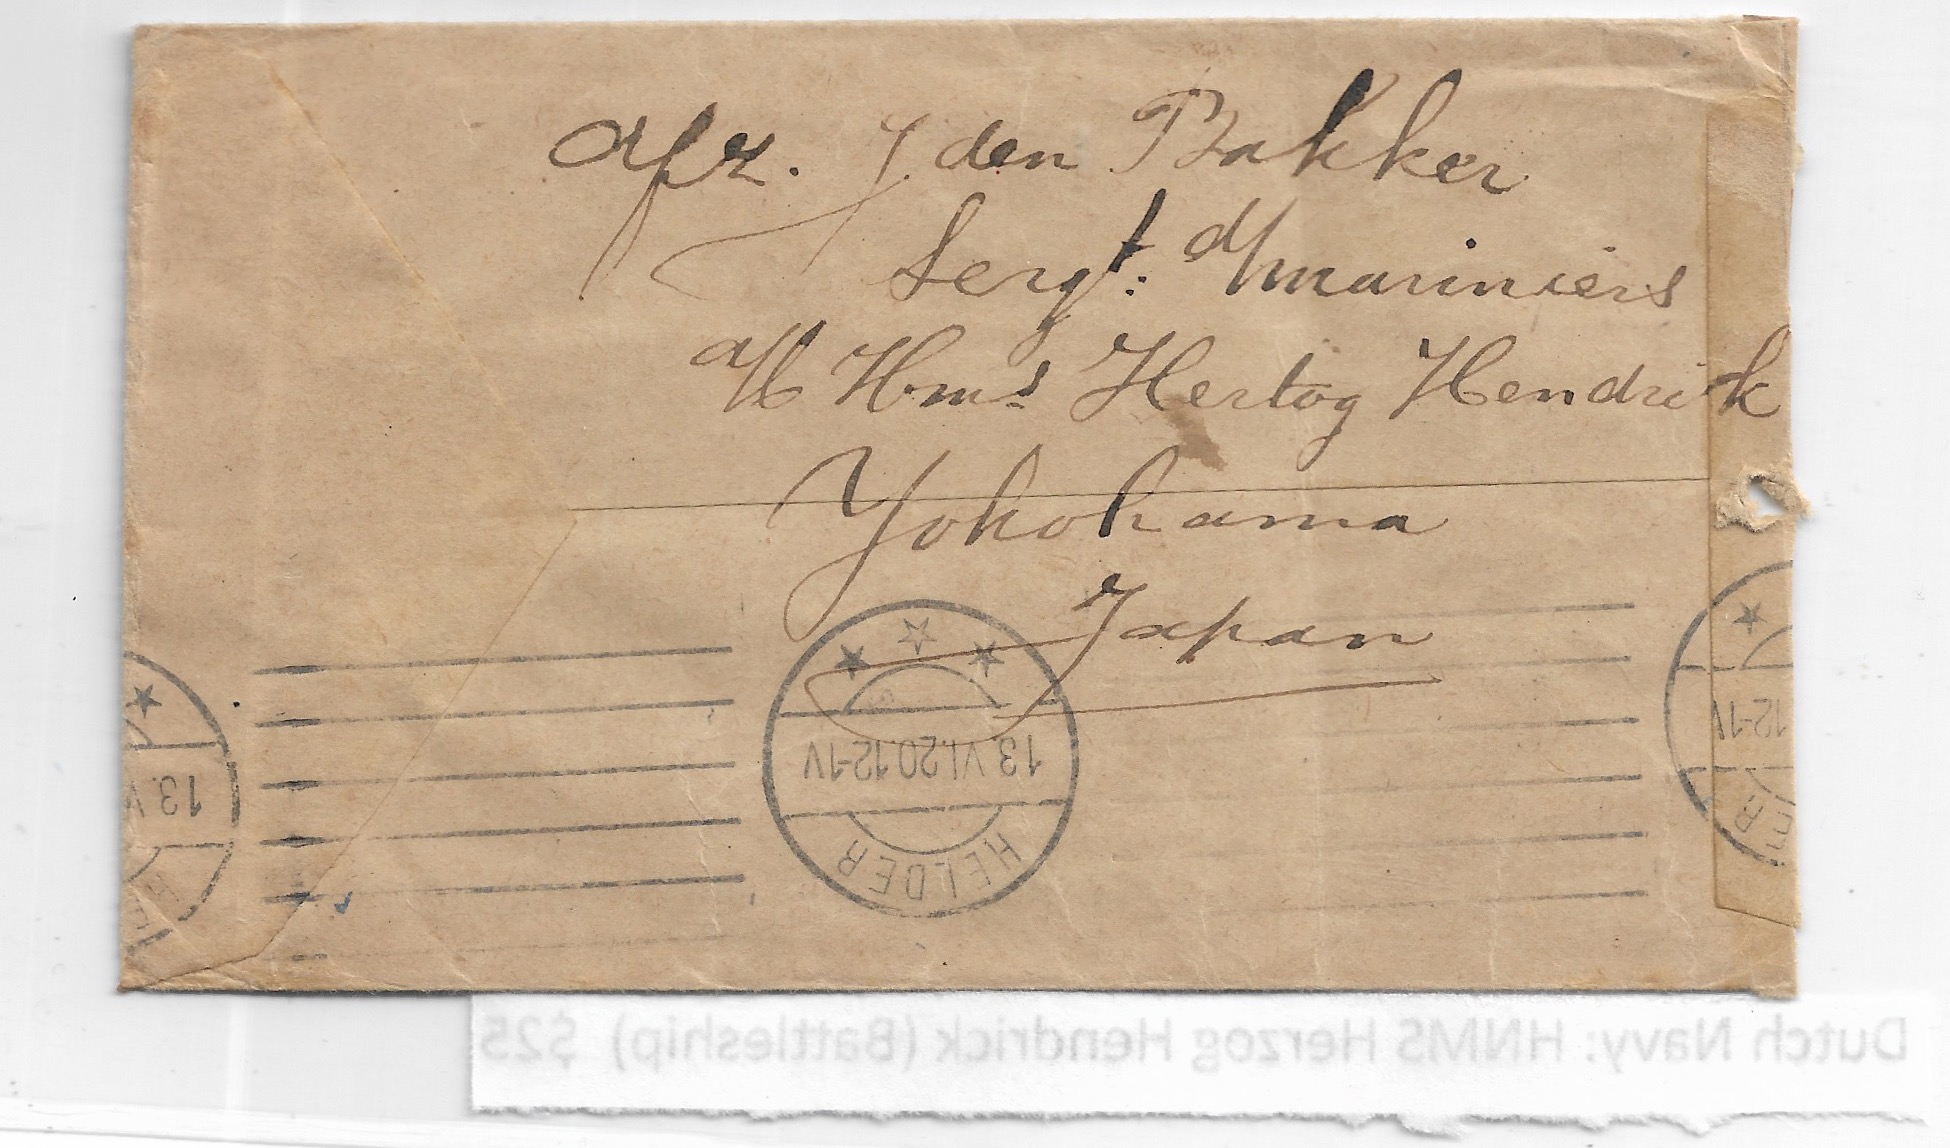 Afz. J den Bakker
Sergt. d/mariniers
a/b Hms Hertog Hendrik
Yokohama
Japan
13.VI.20.12-1V
HELDER
13.V
12-1V
Dutch Navy: HNMS Herzog Hendrick (Battleship) $25